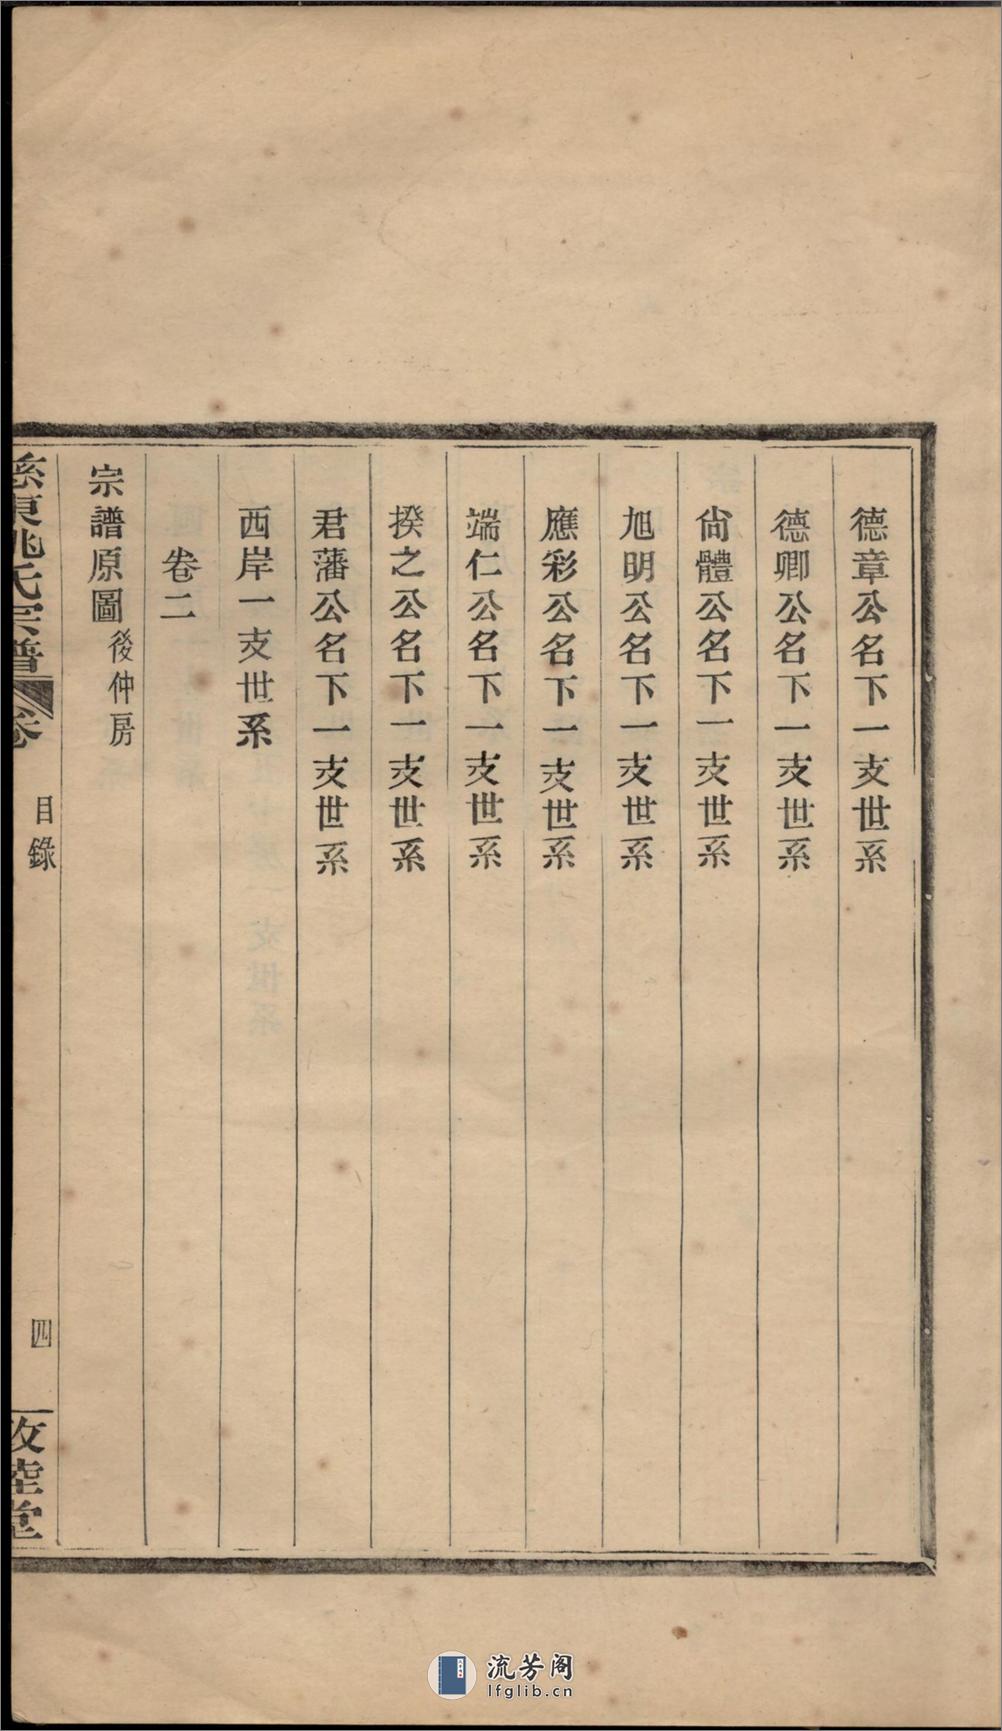 德章公名下一支世系
德卿公名下一支世系
尙體公名下一支世系
旭明公名下一支世系
應彩公名下一支世系
端仁公名下一支世系
揆之公名下一支世系
君藩公名下一支世系
西岸一支世系
卷二
宗譜原圖後仲房
東姚氏宗譜 卷 目錄 四 睦堂
流芳阁
lfglib.cn